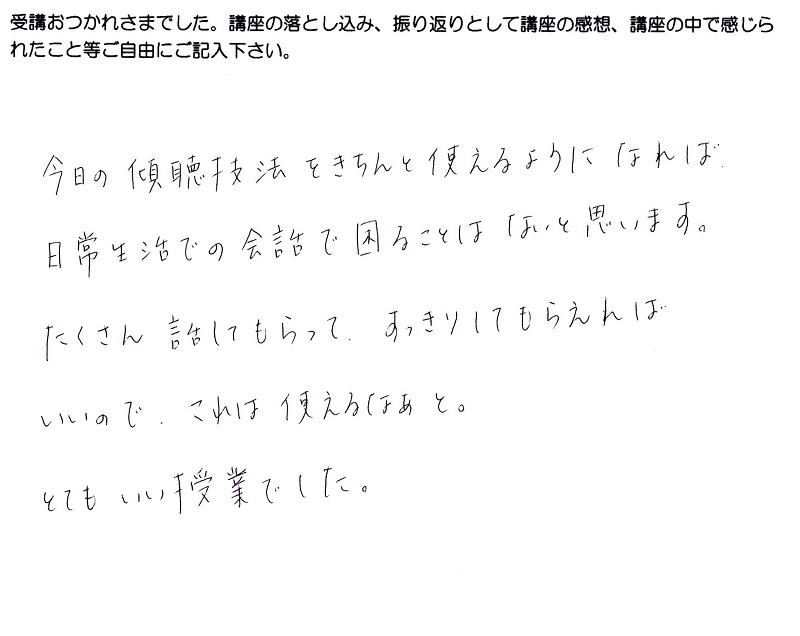 受講おつかれさまでした。講座の落とし込み、振り返りとして講座の感想、講座の中で感じら
れたこと等ご自由にご記入下さい。
今日の傾聴技法をきちんと使えるようになれば、
日常生活での会話で困ることはないと思います。
たくさん話してもらって、すっきりしてもらえれば
いいので、これは使えるなぁと。
とてもいい授業でした。